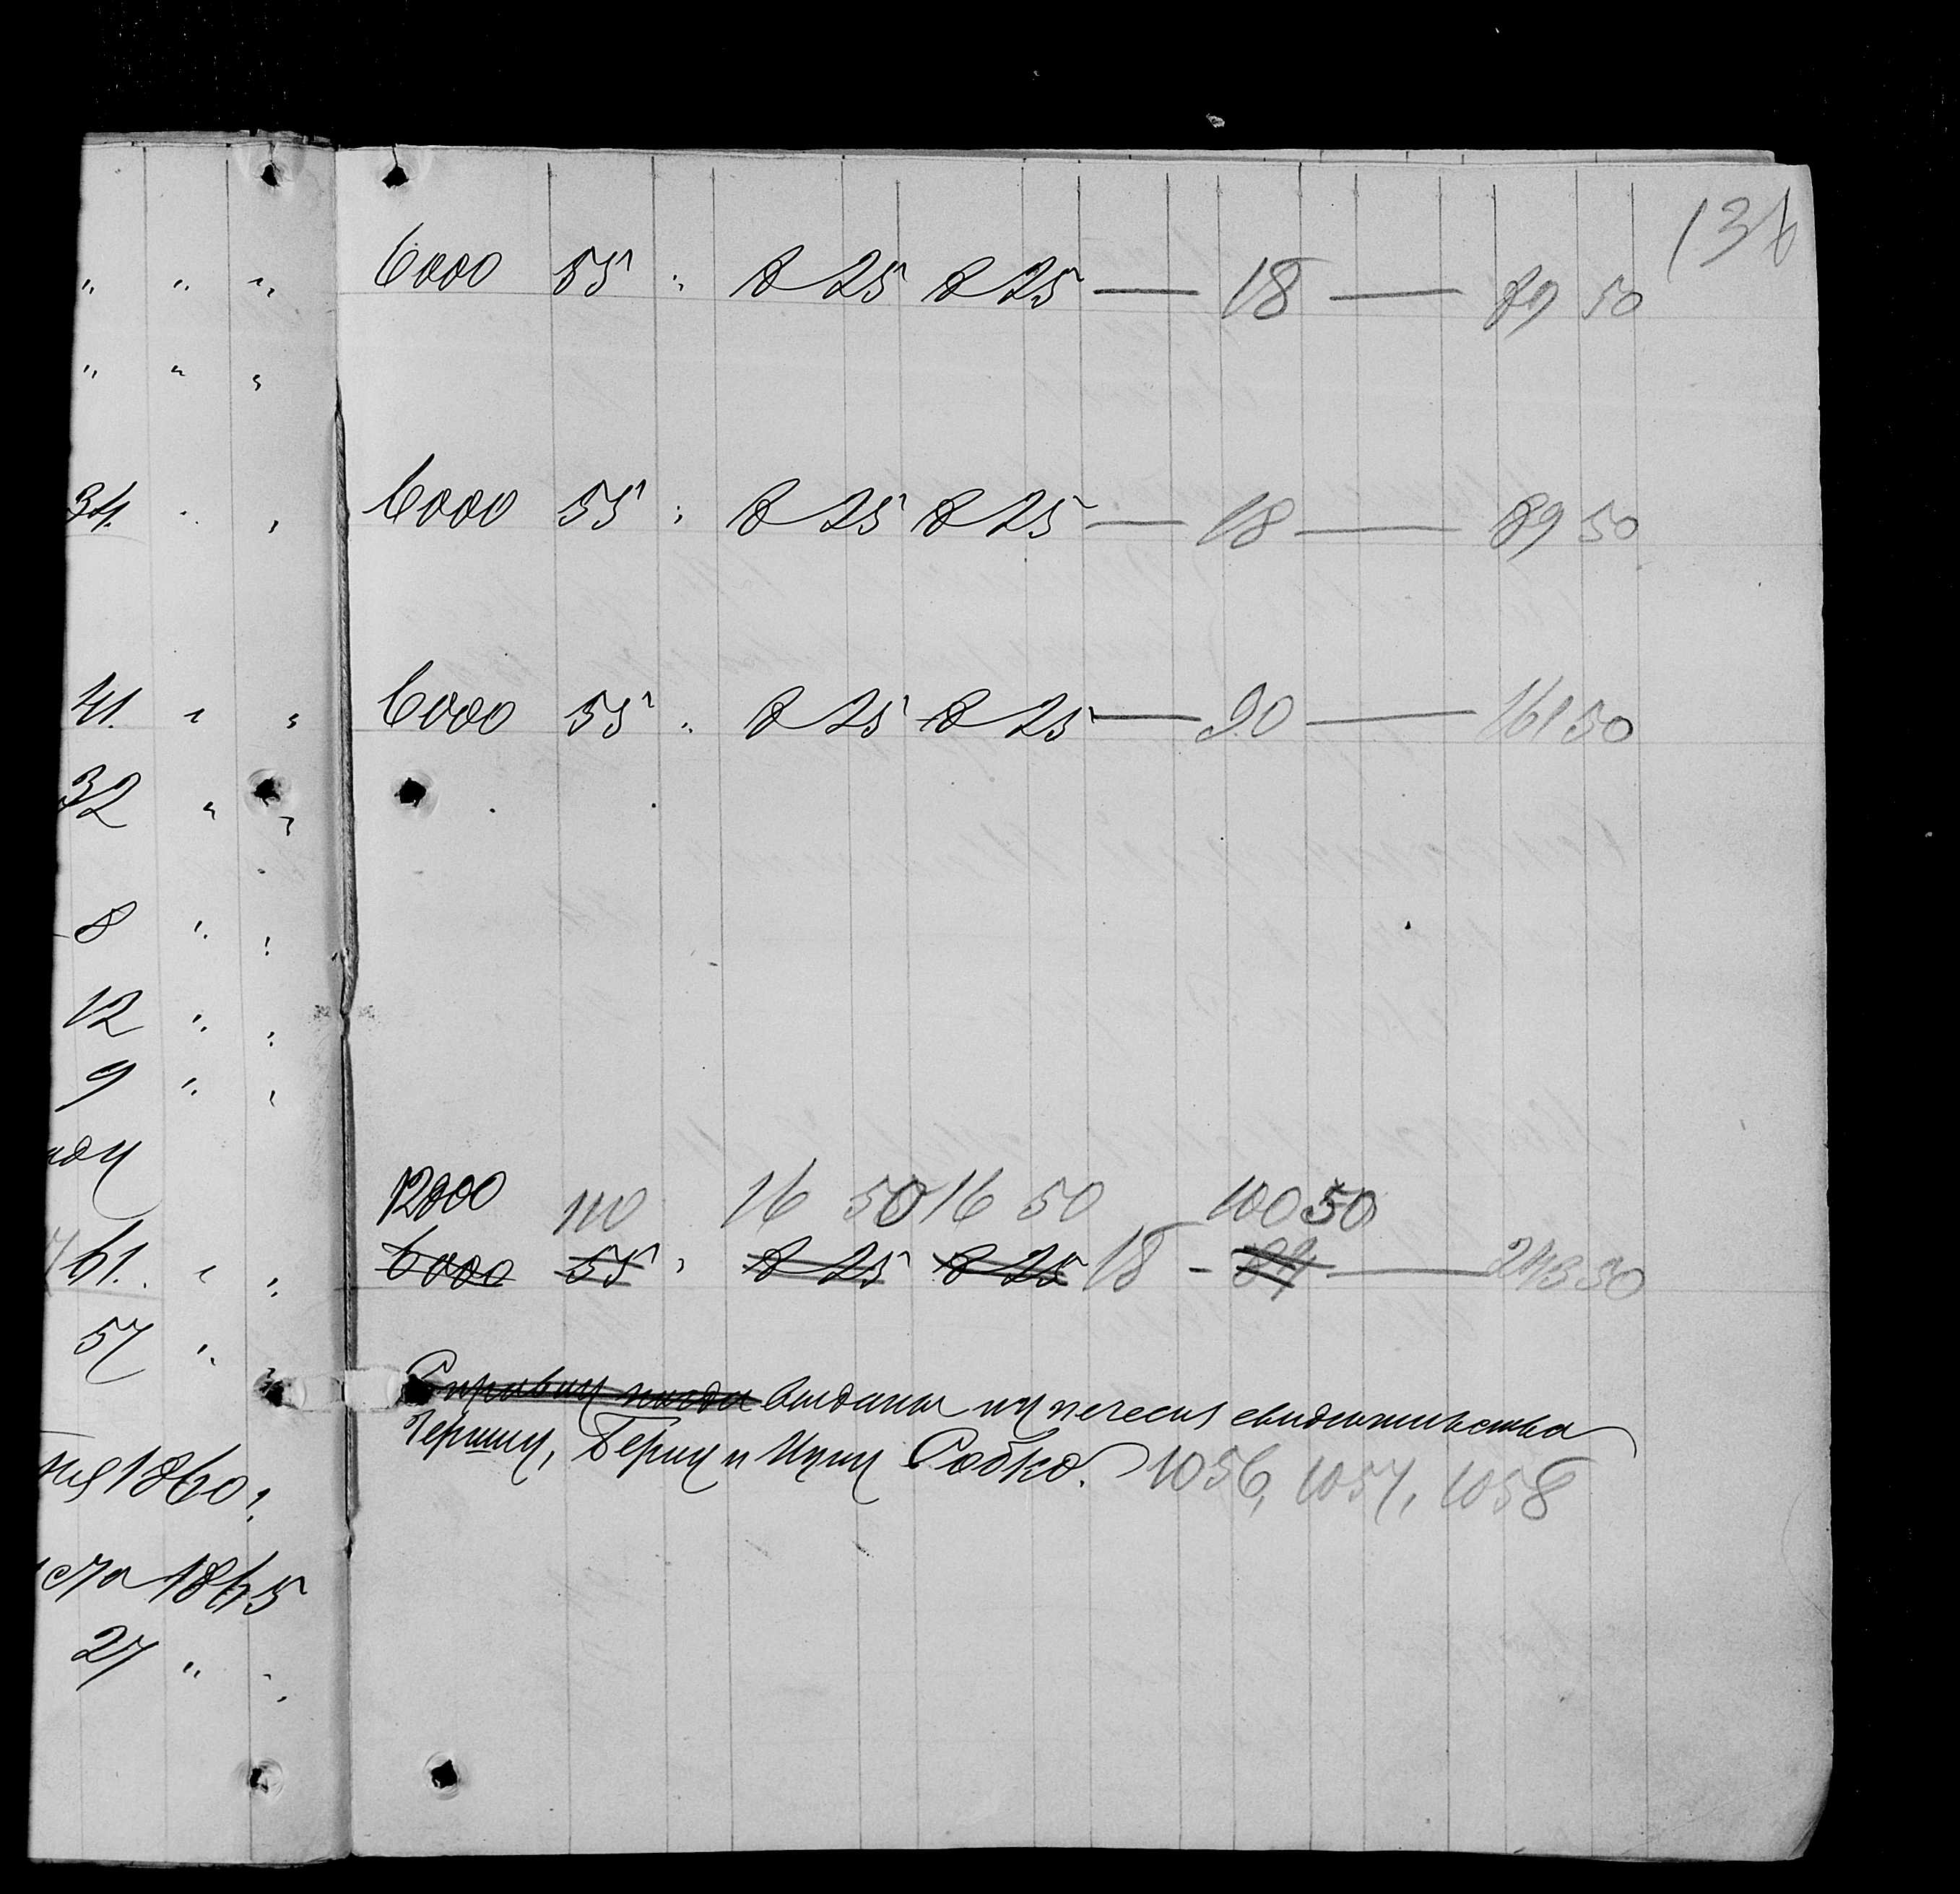 136
" " " 6000 55 " 8 25 8 25 — 18 — 89 50
" " "
34. " " 6000 55 " 8 25 8 25 — 18 — 89 50
41. " " 6000 55 " 8 25 8 25 — 90 — 161 50
32 " "
8 " "
12 " "
9 " "
12000 110 16 50 16 50 100 50
61. " " 6000 55 " 8 25 8 25 18 - 84 — 243 50
57 " "
выданы свидѣтельства
и Собко. 1056, 1057, 1058
1860
1865
27 " "